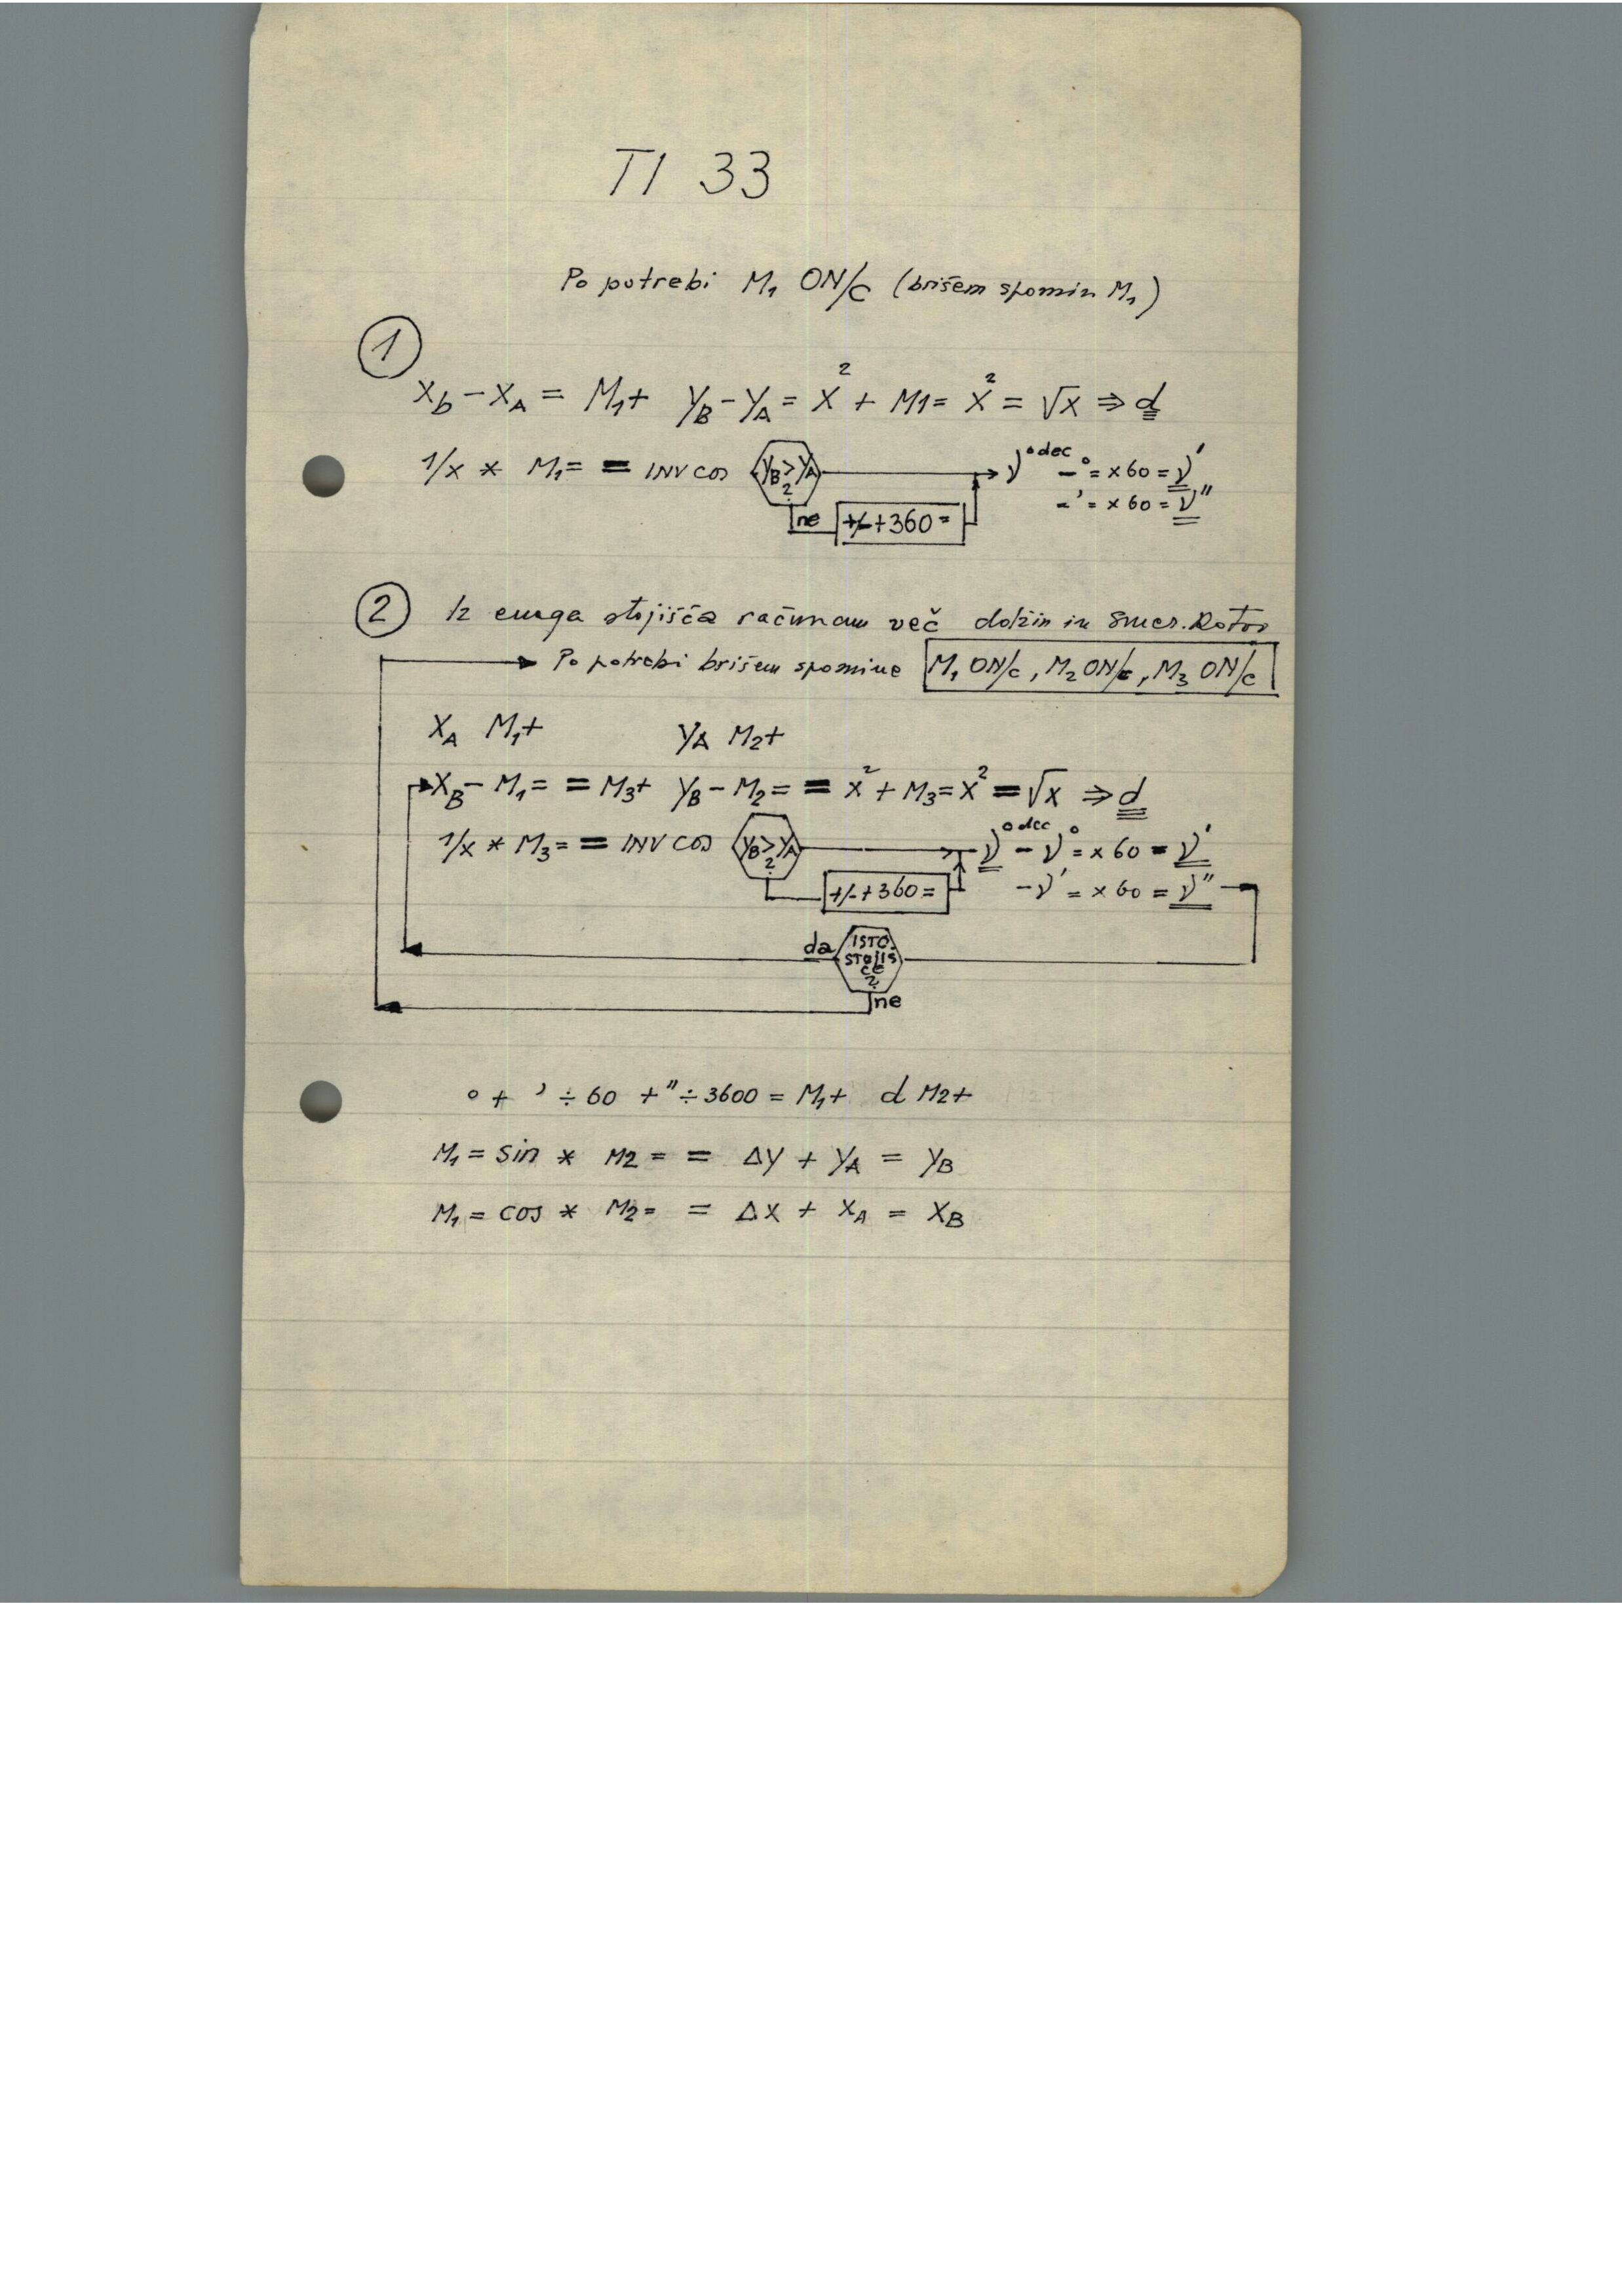 TI 33
Po potrebi M₁ ON/C (brišem spomin M₁)
1
X_b - X_A = M₁+ Y_B - Y_A = X² + M1 = X² = √x ⇒ d
1/x * M₁ = = INV COS Y_B > Y_A ? ν°dec -° = x 60 = ν'
-' = x 60 = ν''
ne +/- + 360 =
2 Iz enega stojišča računam več dolžin in smer. kotov
Po potrebi brišem spomine M₁ ON/C, M₂ ON/C, M₃ ON/C
X_A M₁+ Y_A M₂+
X_B - M₁ = = M₃+ Y_B - M₂ = = X² + M₃ = X² = √x ⇒ d
1/x * M₃ = = INV COS Y_B > Y_A ? ν°dec - ν° = x 60 = ν'
+/- + 360 = - ν' = x 60 = ν''
da ISTO STOJIŠČE ?
ne
° + ' ÷ 60 + '' ÷ 3600 = M₁+ d M2+
M₁ = sin * M2 = = Δy + Y_A = Y_B
M₁ = cos * M₂ = = Δx + X_A = X_B